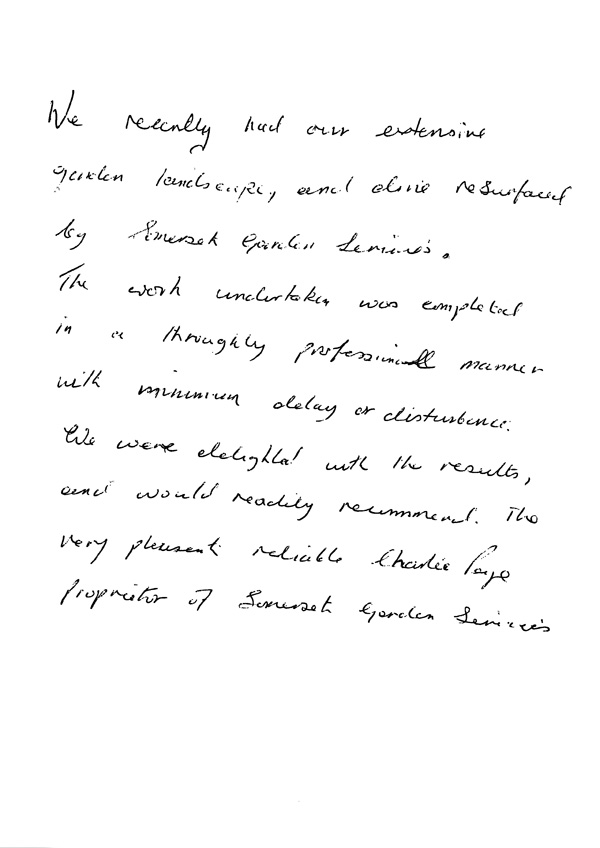 We recently had our extensive
garden landscape, and drive resurfaced
by Somerset Garden Services.
The work undertaken was completed
in a throughly professional manner
with minimum delay or disturbance.
We were delighted with the results,
and would readily recommend. The
very pleasent reliable Charlie Page
proprietor of Somerset Garden Services